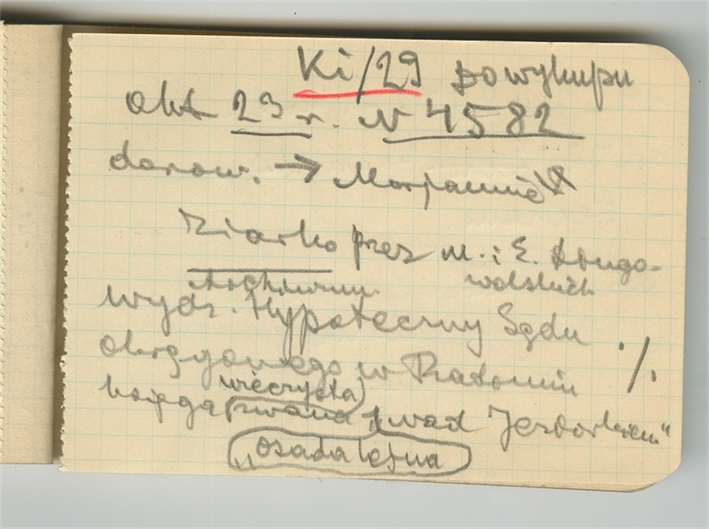 Ki/29 po wykupu
akt 23 r. N 4582
darow. → Marjannie
Ziarko przez M. i E. Długo-
Archiwum. wolskich
wydz. Hypoteczny Sądu
okręgowego w Radomiu %
wieczysta
księga zwana „nad Jeziorkiem”
„osada leśna